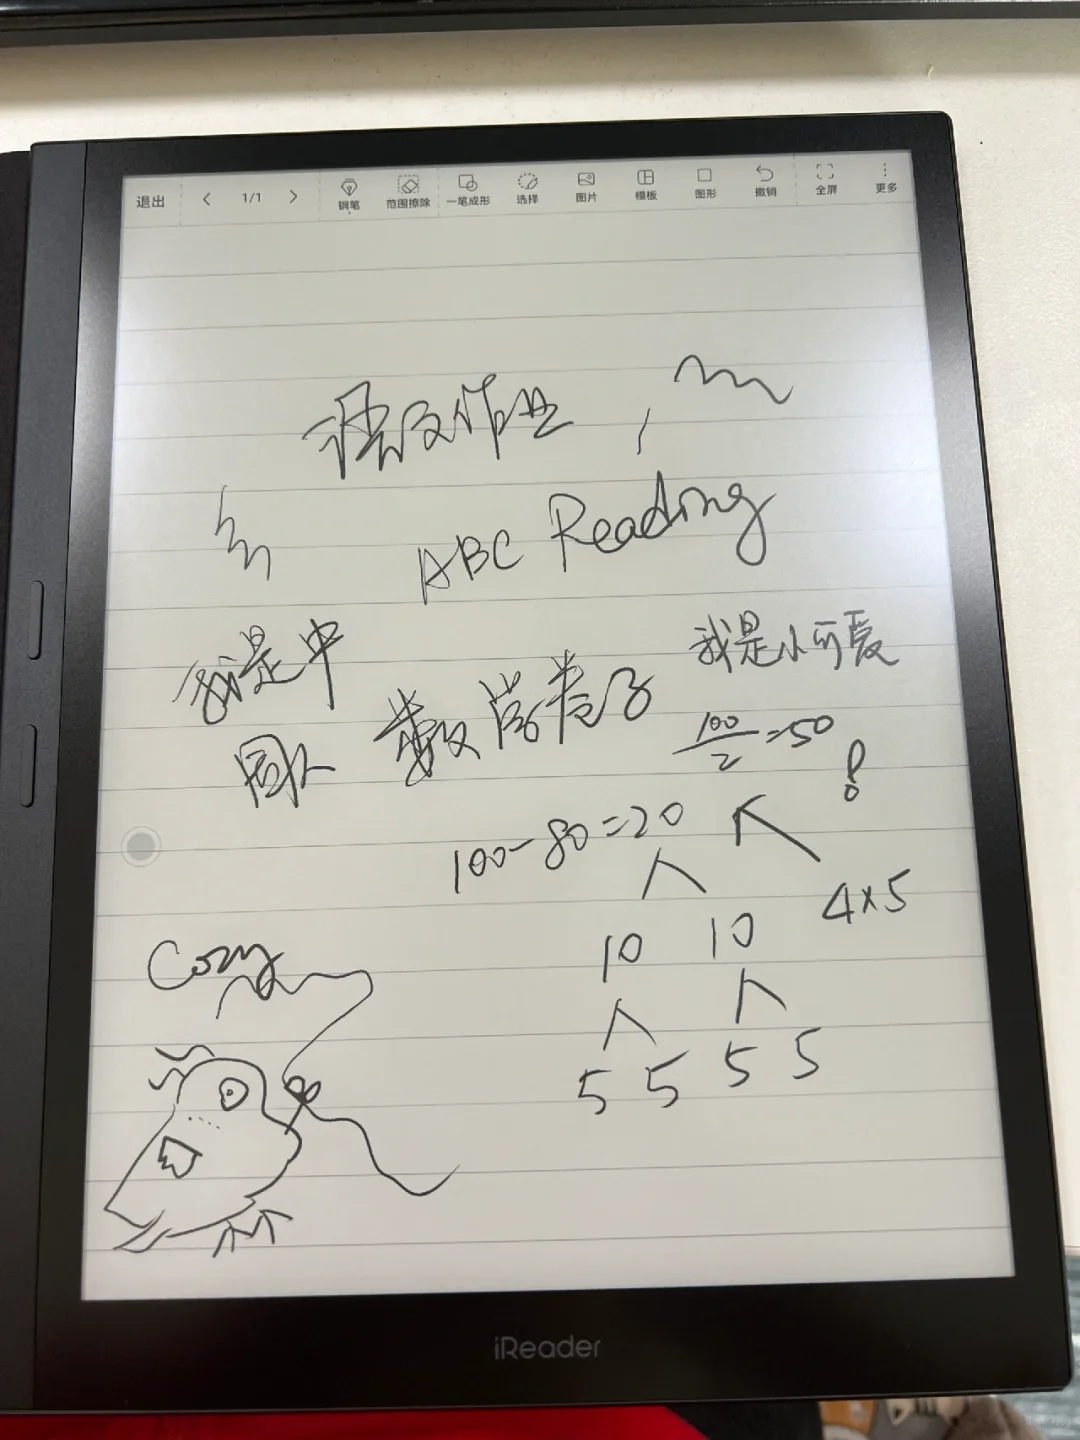 退出 1/1 钢笔 范围擦除 一笔成形 选择 图片 模板 图形 撤销 全屏 更多
语文作业
ABC Reading
我是中
国人
数学卷子
我是小可爱
100/2=50
100-80=20
10 10 4×5
5 5 5 5
iReader